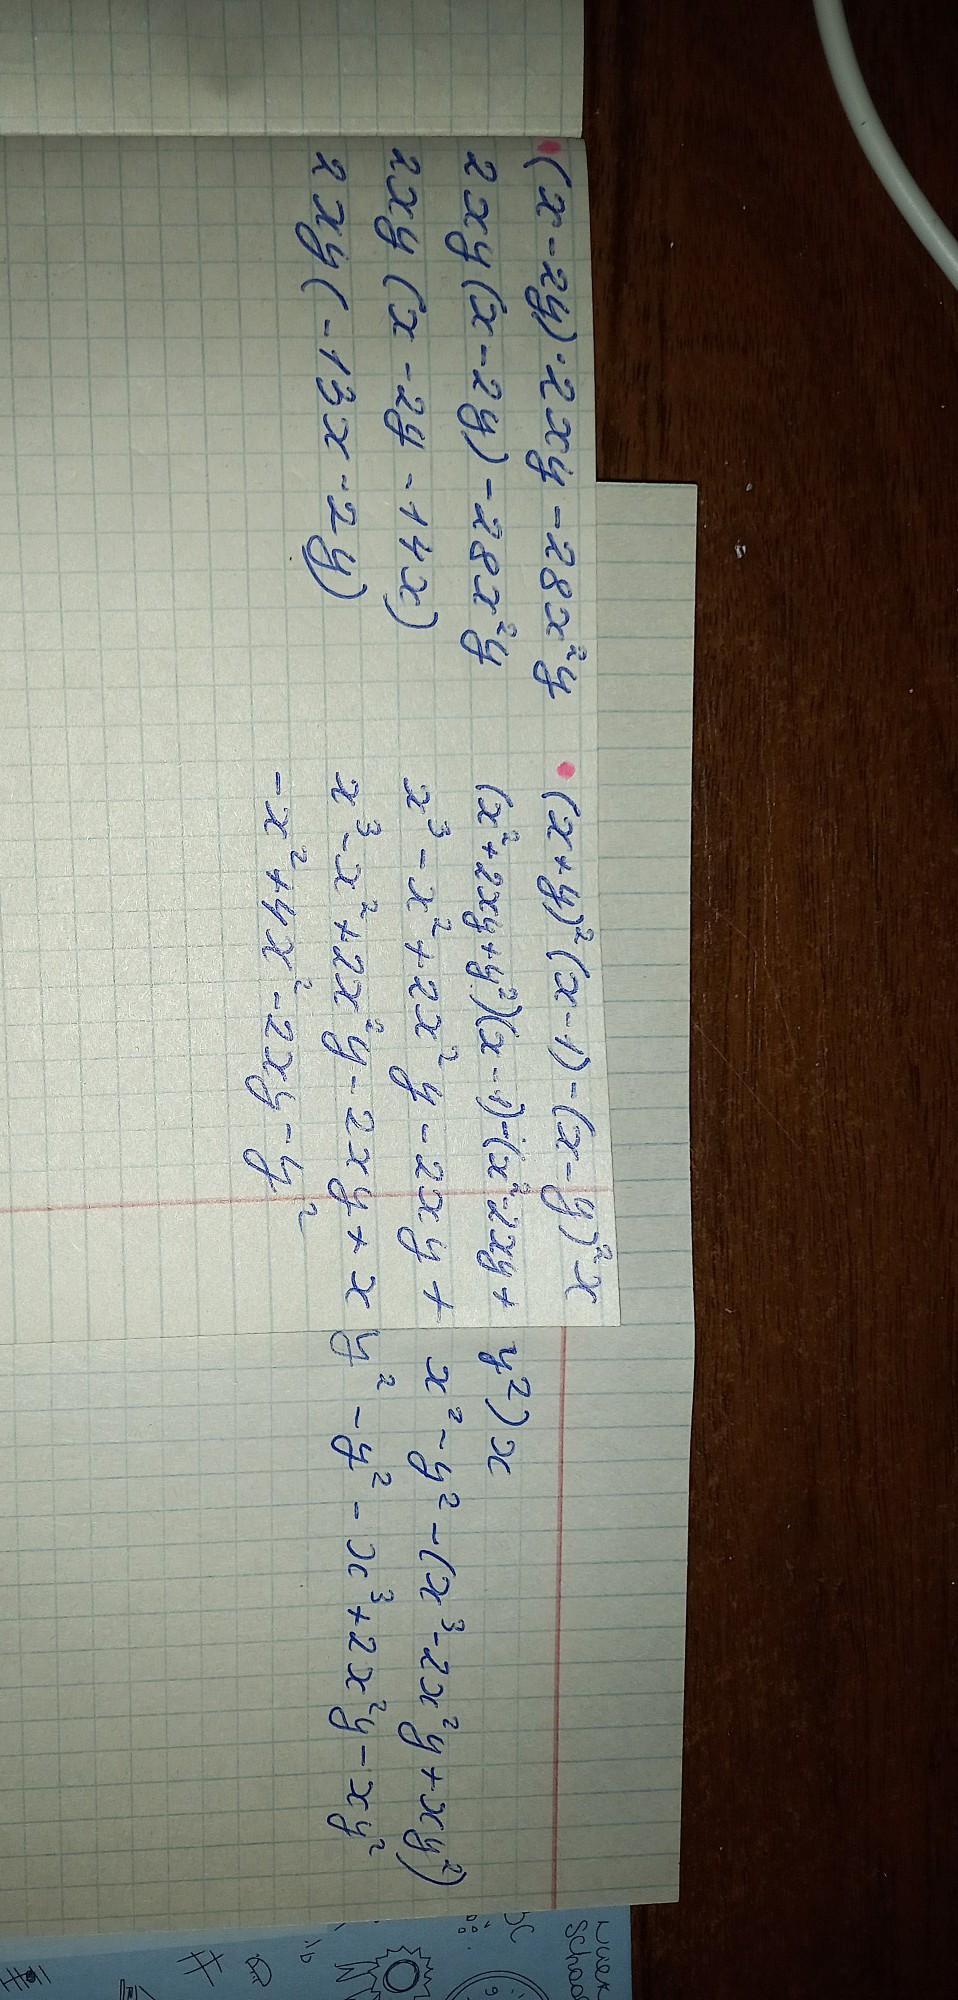 (x-2y)·2xy-28x²y
2xy(x-2y)-28x²y
2xy(x-2y-14x)
2xy(-13x-2y)
(x+y)²(x-1)-(x-y)²x
(x²+2xy+y²)(x-1)-(x²-2xy+ y²)x
x³-x²+2x²y-2xy+ x²-y²-(x³-2x²y+xy²)
x³-x²+2x²y-2xy+x y²-y²-x³+2x²y-xy²
-x²+4x²-2xy-y²